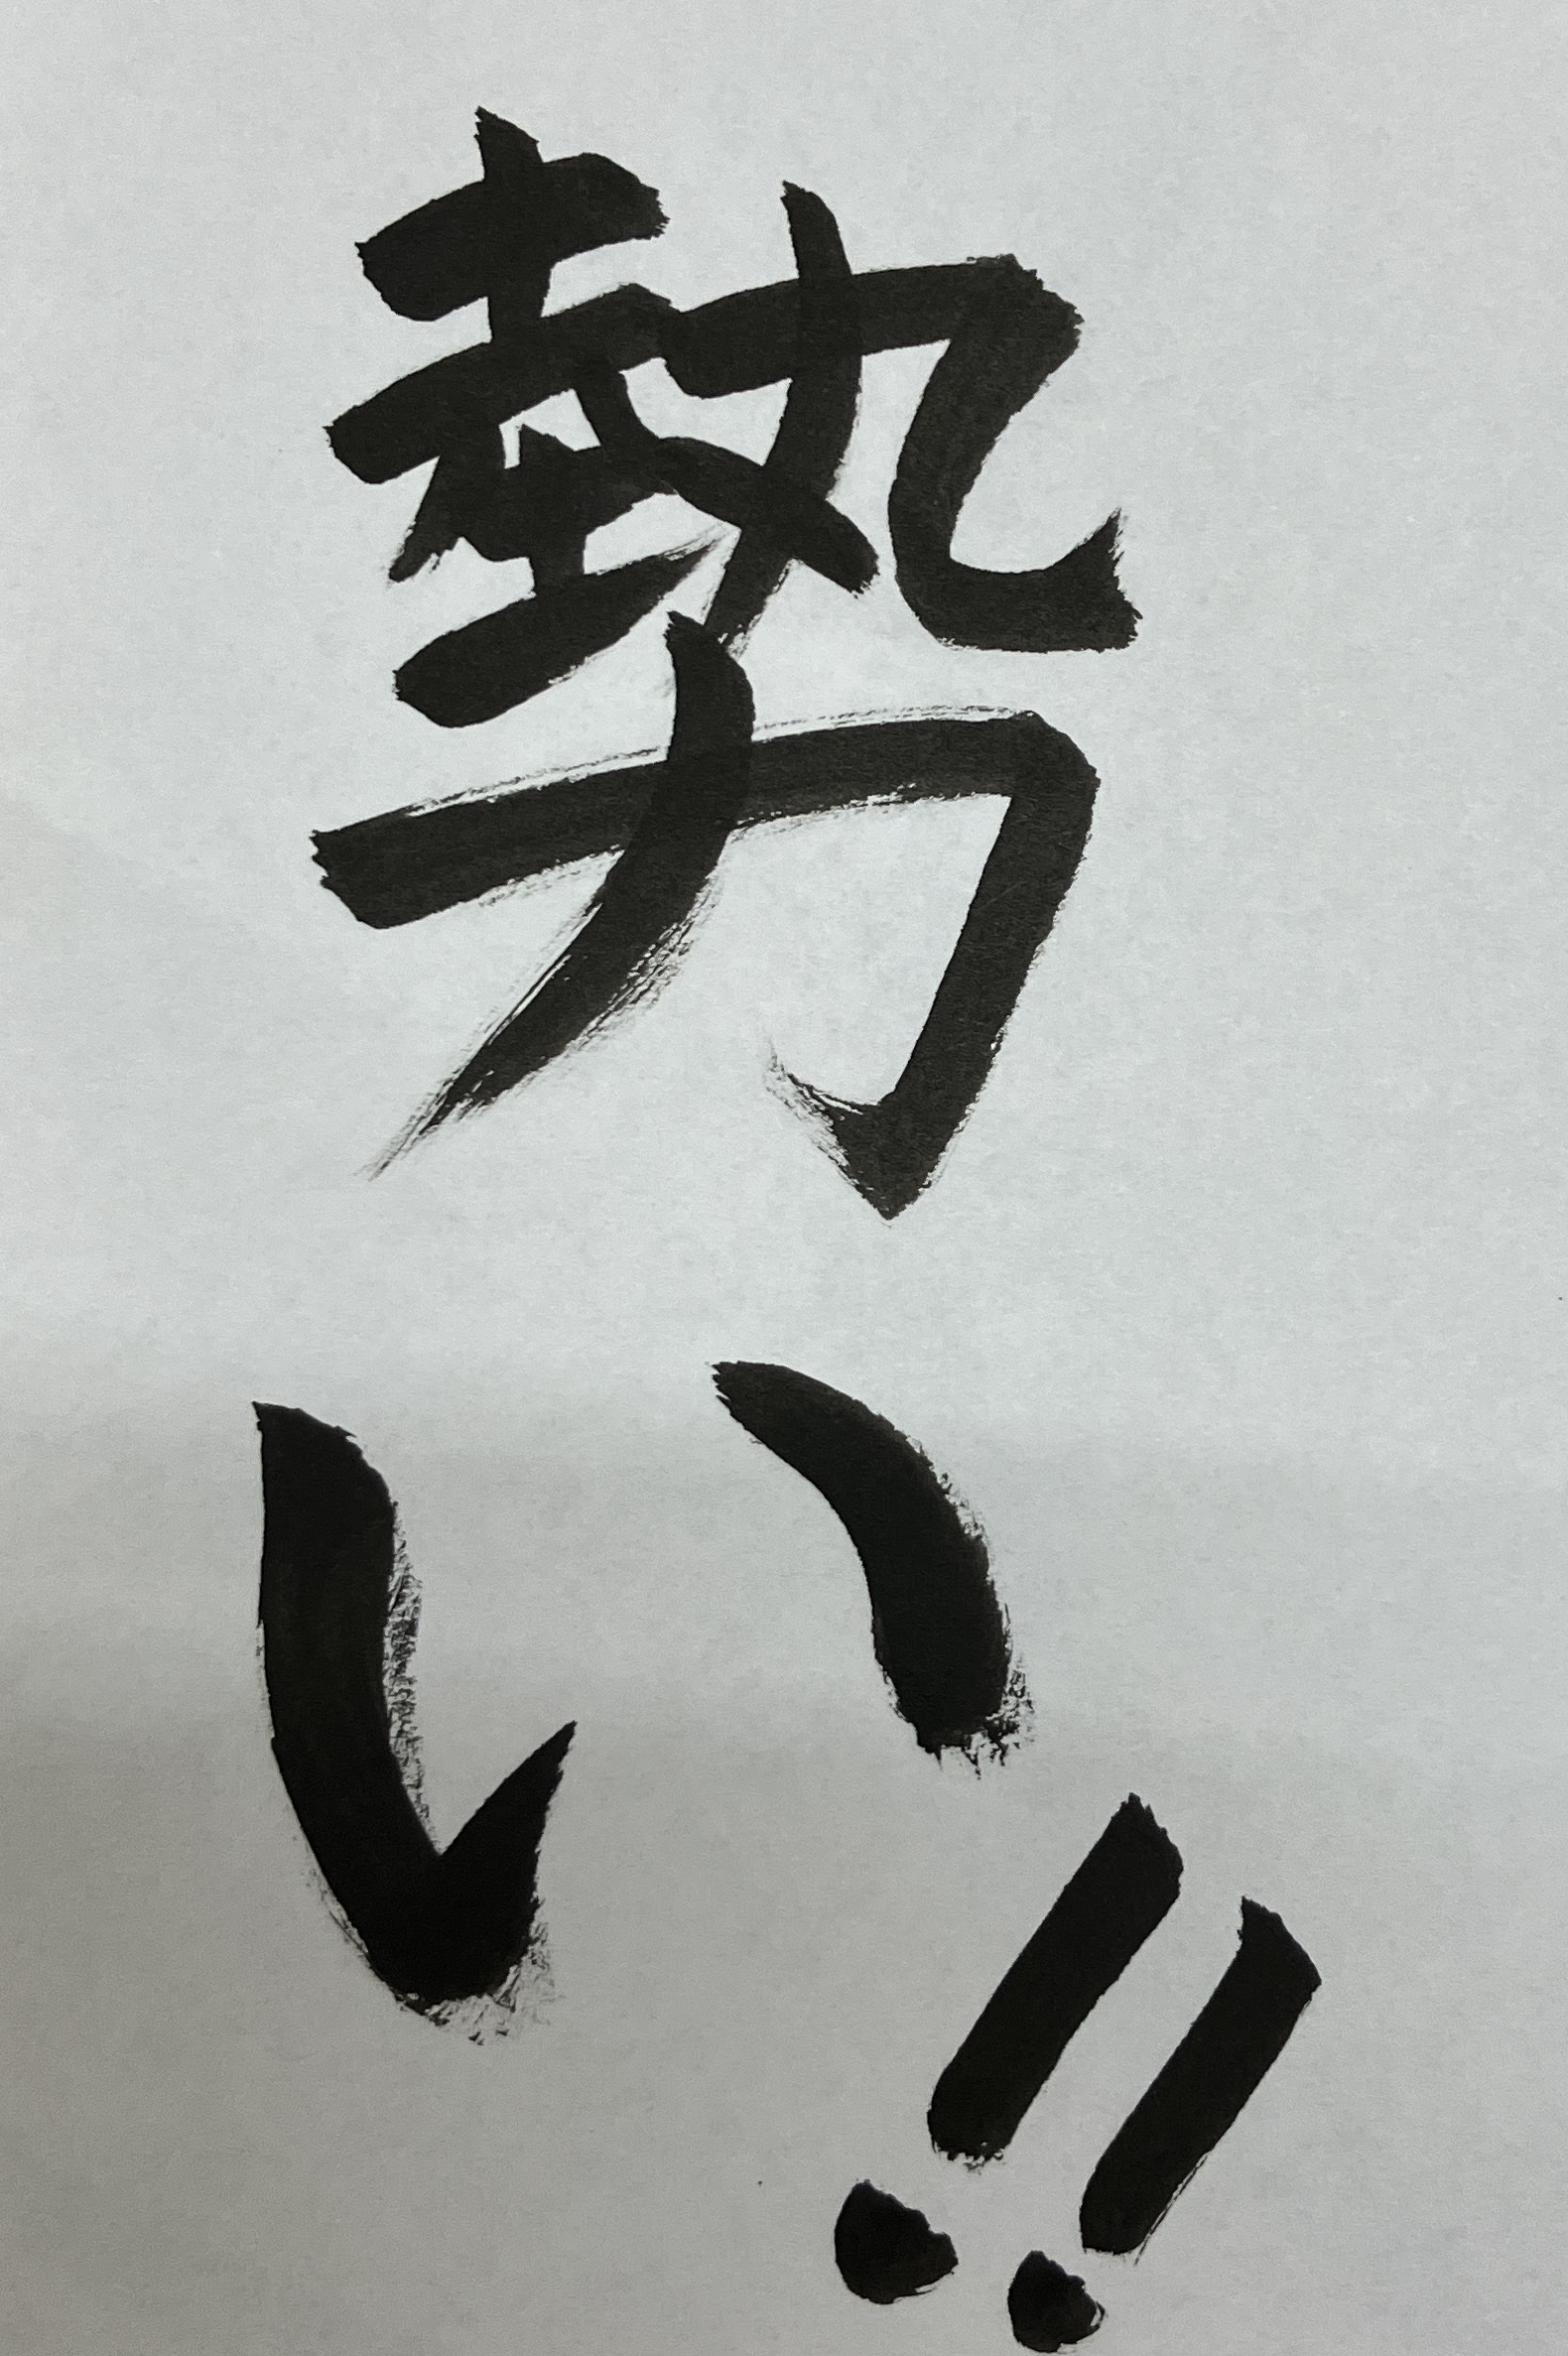 勢い!!